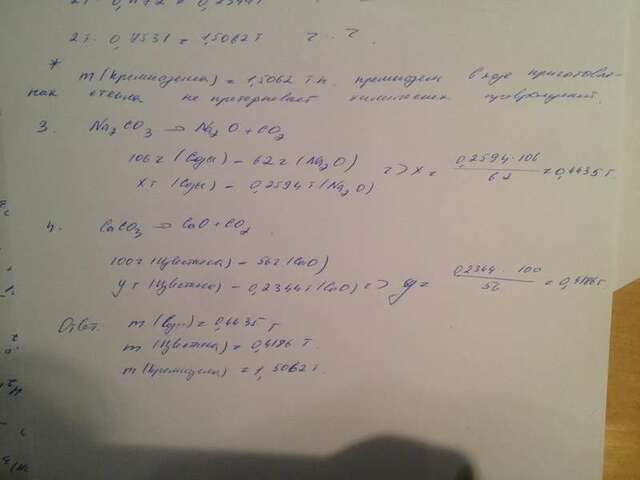 2т · 0,1172 = 0,2344т
2т · 0,7531 = 1,5062 т
* m (кремнезема) = 1,5062 т.к. кремнезем в ходе приготовле-
ния стекла не претерпевает химических превращений.
3. Na2CO3 → Na2O + CO2
106 г (соды) – 62 г (Na2O)
x т (соды) – 0,2594 т (Na2O) => x = 0,2594 · 106 / 62 = 0,4435 т.
4. CaCO3 → CaO + CO2
100 г – 56 г (CaO)
y т – 0,2344 т (CaO) => y = 0,2344 · 100 / 56 = 0,4186 т.
Ответ: m (соды) = 0,4435 т
m = 0,4186 т.
m (кремнезема) = 1,5062 т.